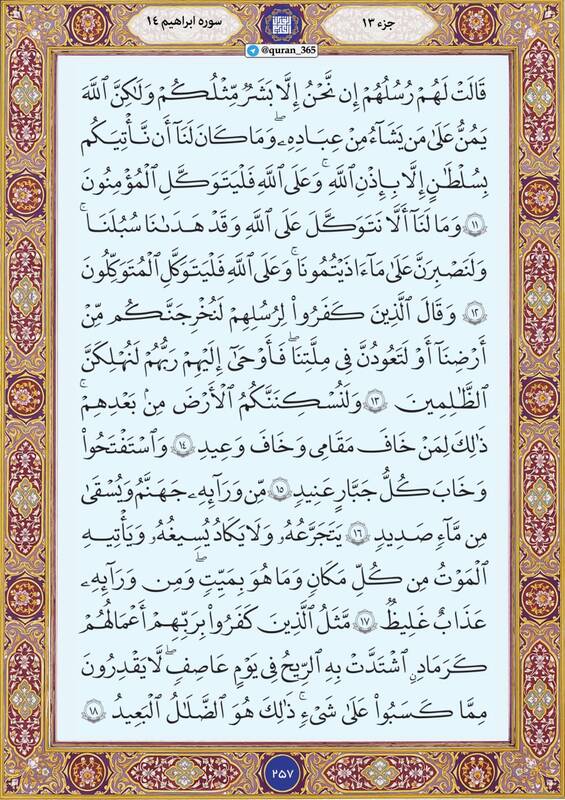 سوره ابراهیم ۱۴
جزء ۱۳
@quran_365
قَالَتْ لَهُمْ رُسُلُهُمْ إِن نَّحْنُ إِلَّا بَشَرٌ مِّثْلُكُمْ وَلَٰكِنَّ ٱللَّهَ
يَمُنُّ عَلَىٰ مَن يَشَآءُ مِنْ عِبَادِهِۦ ۖ وَمَا كَانَ لَنَآ أَن نَّأْتِيَكُم
بِسُلْطَٰنٍ إِلَّا بِإِذْنِ ٱللَّهِ ۚ وَعَلَى ٱللَّهِ فَلْيَتَوَكَّلِ ٱلْمُؤْمِنُونَ
۱۱ وَمَا لَنَآ أَلَّا نَتَوَكَّلَ عَلَى ٱللَّهِ وَقَدْ هَدَىٰنَا سُبُلَنَا ۚ
وَلَنَصْبِرَنَّ عَلَىٰ مَآ ءَاذَيْتُمُونَا ۚ وَعَلَى ٱللَّهِ فَلْيَتَوَكَّلِ ٱلْمُتَوَكِّلُونَ
۱۲ وَقَالَ ٱلَّذِينَ كَفَرُوا۟ لِرُسُلِهِمْ لَنُخْرِجَنَّكُم مِّنْ
أَرْضِنَآ أَوْ لَتَعُودُنَّ فِى مِلَّتِنَا ۖ فَأَوْحَىٰٓ إِلَيْهِمْ رَبُّهُمْ لَنُهْلِكَنَّ
ٱلظَّٰلِمِينَ ۱۳ وَلَنُسْكِنَنَّكُمُ ٱلْأَرْضَ مِنۢ بَعْدِهِمْ ۚ
ذَٰلِكَ لِمَنْ خَافَ مَقَامِى وَخَافَ وَعِيدِ ۱۴ وَٱسْتَفْتَحُوا۟
وَخَابَ كُلُّ جَبَّارٍ عَنِيدٍ ۱۵ مِّن وَرَآئِهِۦ جَهَنَّمُ وَيُسْقَىٰ
مِن مَّآءٍ صَدِيدٍ ۱۶ يَتَجَرَّعُهُۥ وَلَا يَكَادُ يُسِيغُهُۥ وَيَأْتِيهِ
ٱلْمَوْتُ مِن كُلِّ مَكَانٍ وَمَا هُوَ بِمَيِّتٍ ۖ وَمِن وَرَآئِهِۦ
عَذَابٌ غَلِيظٌ ۱۷ مَّثَلُ ٱلَّذِينَ كَفَرُوا۟ بِرَبِّهِمْ أَعْمَٰلُهُمْ
كَرَمَادٍ ٱشْتَدَّتْ بِهِ ٱلرِّيحُ فِى يَوْمٍ عَاصِفٍ ۖ لَّا يَقْدِرُونَ
مِمَّا كَسَبُوا۟ عَلَىٰ شَىْءٍ ۚ ذَٰلِكَ هُوَ ٱلضَّلَٰلُ ٱلْبَعِيدُ ۱۸
۲۵۷